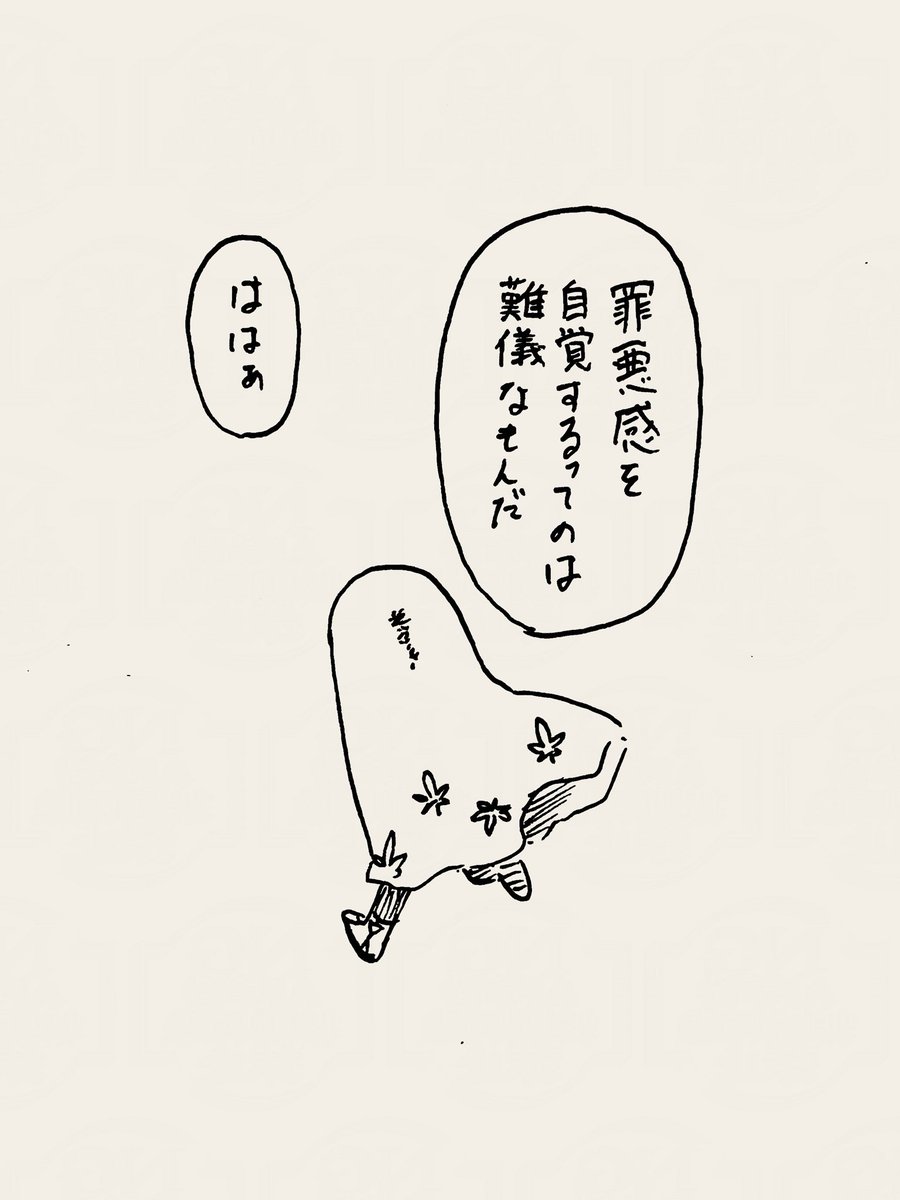 罪悪感を
自覚するってのは
難儀なもんだ
ははぁ